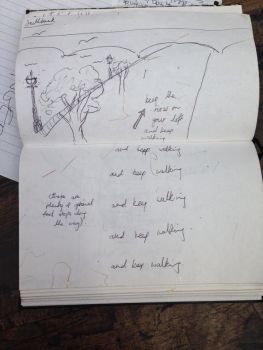 Southbank
keep the
river on
your left
and keep
walking
and keep walking
and keep walking
and keep walking
and keep walking
and keep walking
(there are
plenty of
food stops along
the way)